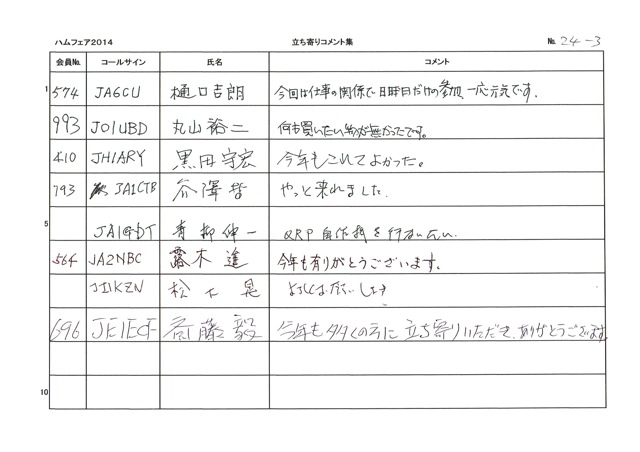 ハムフェア2014 立ち寄りコメント集 № 24-3
会員№ コールサイン 氏名 コメント
1 574 JA6CU 樋口吉朗 今回は仕事の関係で日曜日だけの参加、一応元気です.
993 JO1UBD 丸山裕二 何も買いたい物が無かったです。
410 JH1ARY 黒田守宏 今年もこれてよかった。
793 JA1CTB 谷澤哲 やっと来れました.
5 青柳伸一 QRP 自作機を
564 JA2NBC 露木進 今年も有りがとうございます。
JI1KZN 松下晃
696 JE1ECF 斎藤毅 今年も多くの方に立ち寄りいただき、ありがとうございます.
10